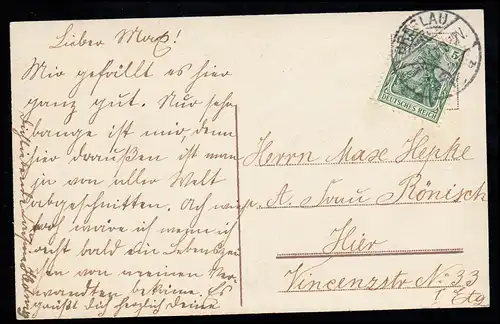 Lieber Max!
Mir gefällt es hier
ganz gut. Nur sehr
bange ist mir, denn
hier draußen ist man
ja von aller Welt
abgeschnitten. Ach wie
froh wäre ich wenn ich
recht bald ein Lebenszei-
chen von meinen Ver-
wandten bekäme. Es
grüßt dich herzlich deine
BRESLAU
DEUTSCHES REICH
5
Herrn Max Hepke
p. A. Frau Rönisch
Hier
Vincenzstr No 33
I Etg